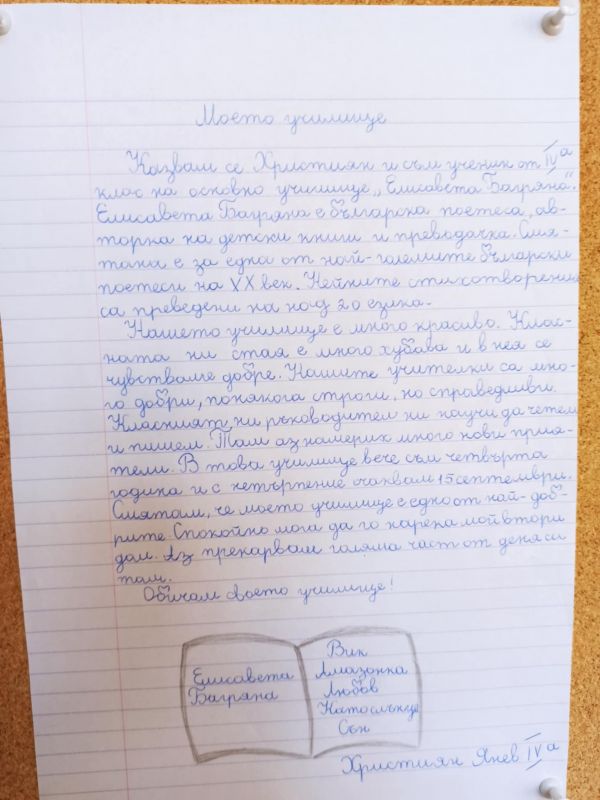 Моето училище
Казвам се Християн и съм ученик от IVа
клас на основно училище „Елисавета Багряна“.
Елисавета Багряна е българска поетеса, ав-
торка на детски книги и преводачка. Смя-
тана е за една от най-големите български
поетеси на XX век. Нейните стихотворения
са преведени на над 20 езика.
Нашето училище е много красиво. Клас-
ната ни стая е много хубава и в нея се
чувстваме добре. Нашите учителки са мно-
го добри, понякога строги, но справедливи.
Класният ни ръководител ни научи да четем
и пишем. Там аз намерих много нови прия-
тели. В това училище вече съм четвърта
година и с нетърпение очаквам 15 септември.
Смятам, че моето училище е едно от най-доб-
рите. Спокойно мога да го нарека мой втори
дом. Аз прекарвам голяма част от деня си
там.
Обичам своето училище!
Елисавета
Багряна
Вик
Амазонка
Любов
Катослънце
Сън
Християн Янев IVа